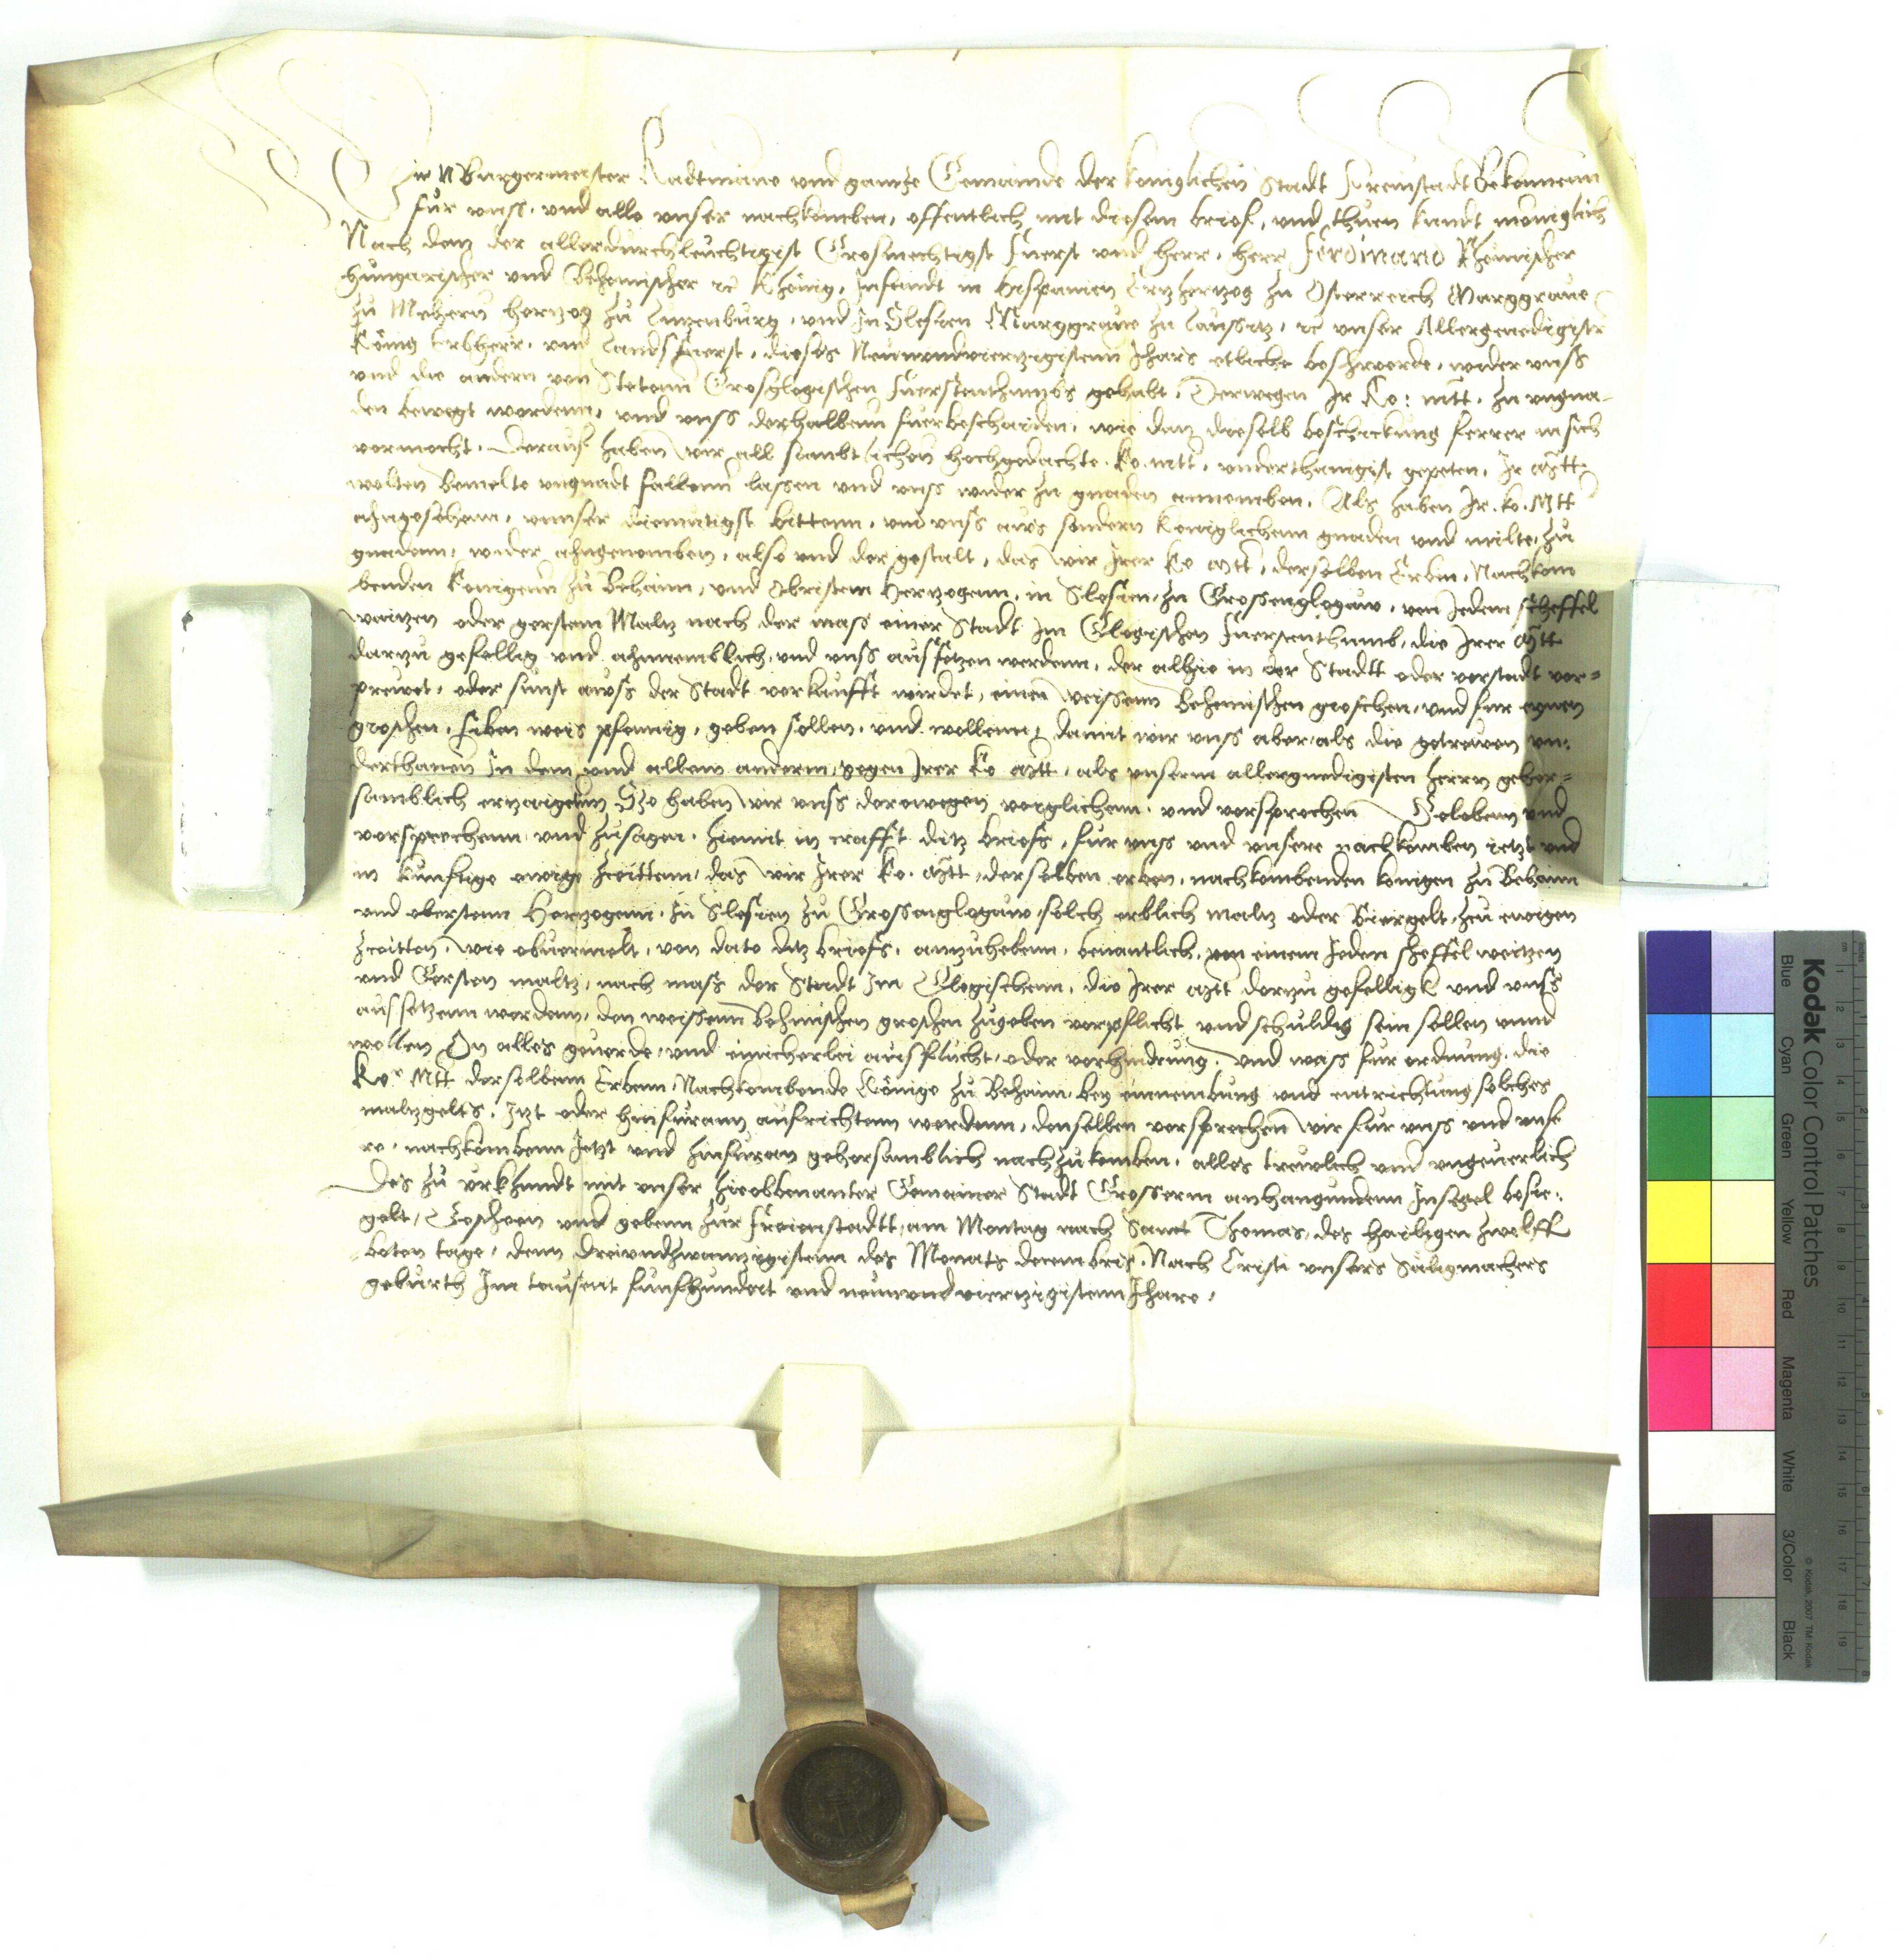 Wir N Burgermeister Radtmanne und gantze Gemainde der koniglichen Stadt Freinstadt Bekennenn
fur unss, und alle unser nachkomben, offentlich mit diesem brief, und thuen kundt meniglich
Nach dem der allerdurchleuchtigist Grosmechtigst Fuerst und Herr, herr Ferdinand Rhömischer
hungarischer und Behemischer rc Khönig, Infandt in hispanien Ertzhertzog zu Osterreich Marggrave
zu Mehern hertzog zu Lutzenburg, und in Slesien Marggrave zu Laussitz, rc unser Allergenedigister
König Erbherr, und Landsfuerst, dieses Neunundvierzigistenn Jhars etliche beschwerde, wider unss
und die andern von Stetenn Grosglogischen Fuerstenthumbs gehabt, Derwegen Ir Ko: mtt. zu ungna-
den bewegt wordenn, und unss derhalbenn fuerbeschaiden, wie dan dieselb beschickung ferrer in sich
vermocht. Derauf haben wir all sambtlichen hochgedachte. Ko. mtt. underthanigist gepeten, Ir Mtt.
wolten bemelte ungnadt fallenn lassen und unss wider zu gnaden annemben. Als haben Ir. Ko. Mtt
ahngesehenn, unnser diemutigst bittenn, und unss aus sondern koniglichenn gnaden und milte, zu
gnadenn, wider ahngenomben, also und der gestalt, das wir Irer Ko Mtt, derselben Erben, Nachkom
benden Konigenn zu Behaim, und Obristenn Hertzogenn, in Slesien, zu Grossenglogaw, von Jedem scheffel
waitzen oder gerstenn Maltz nach der mass einer Stadt im Glogischen Fuerstenthumb, die Irer Mtt
dartzu gefellig und ahnnemblich, und unss aussetzen werdenn, der alhie in der Stadtt oder vorstadt ver-
prewet, oder sunst awss der Stadt verkaufft wirdet, einen weissenn Behemischen groschen, und fur eynen
groschen, siben weis pfennig, geben sollen, und wollenn, damit wir unss aber, als die getrewen un-
derthanen In dem und allem anderm, gegen Irer Ko Mtt, als unserm allergnedigisten herrn gehor-
samblich ertzaigeten So haben wir unss derowegen verglichenn, und versprochen Gelobenn und
versprechenn und zusagen, hiemit in crafft ditz briefs, fur unss und unsere nachkomben ietzt und
in kunftige ewige zceittenn, das wir Irer Ko. Mtt, derselben erben, nachkombenden konigen zu Behaim
und oberstenn Hertzogenn, in Slesien zu Grossenglogaw, solch erblich maltz oder Biergelt, zu ewigen
zceitten, wie obvermelt, von dato ditz briefs, anzuhebenn, benantlich, von einem Jeden sheffel weitzen
und Gersten maltz, nach mass der Stadt Im Glogischenn, die Irer Mtt dortzu gefelligk und unss
aussetzenn werdenn, den weissenn behmischen groschen zugeben verpflicht und schuldig sein sollen unnd
wollen On alles geverde, und einicherlei ausflucht, oder verhindrung. Und wass fur ordnung, die
Ko. Mtt derselbenn Erbenn Nachkombende Könige zu Behaim, bey einnembung und entrichtung solches
maltzgelts, Itzt oder hinfurann aufrichtenn werdenn, denselben versprechen wir fur unss und unse
re, nachkombenn Jetzt und hinfuran gehorsamblich nachzukomben, alles treulich und ungeverlich
Des zu urkhundt mit unser hieobbenanter Gemainer Stadt Grosserm anhangundenn Insigel besie-
gelt, Geschen und gebenn zur Freienstadtt, am Montag nach Sanct Thomas, des heiligen zwelff
boten tage, denn dreiundzwanzigistenn des Monats decembris, Nach Cristi unsers Säligmachers
geburth Im tausent funfhundert und neunundviertzigistenn Jhare,
Kodak Color Control Patches
Blue Cyan Green Yellow Red Magenta White 3/Color Black
© Kodak, 2007 TM: Kodak
cm 1 2 3 4 5 6 7 8 9 10 11 12 13 14 15 16 17 18 19
inches 1 2 3 4 5 6 7 8